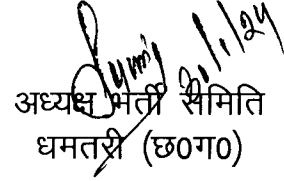 अध्यक्ष भर्ती समिति
धमतरी (छ०ग०)